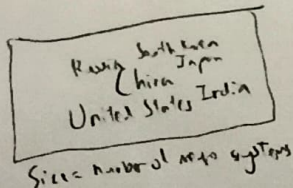 Russia South Korea
China Japan
United States India
Size = number of metro systems